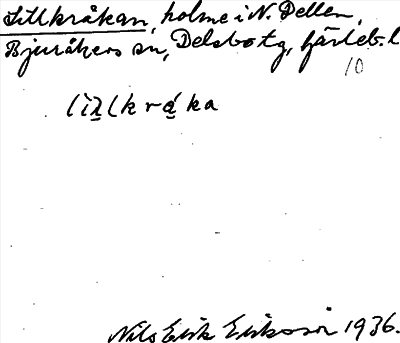 Lillkråkan, holme i N. Dellen,
Bjuråkers sn, Delsbo tg, Gävleb. l
10
lìl̠lkrá̠ka
Nils Erik Eriksson 1936.